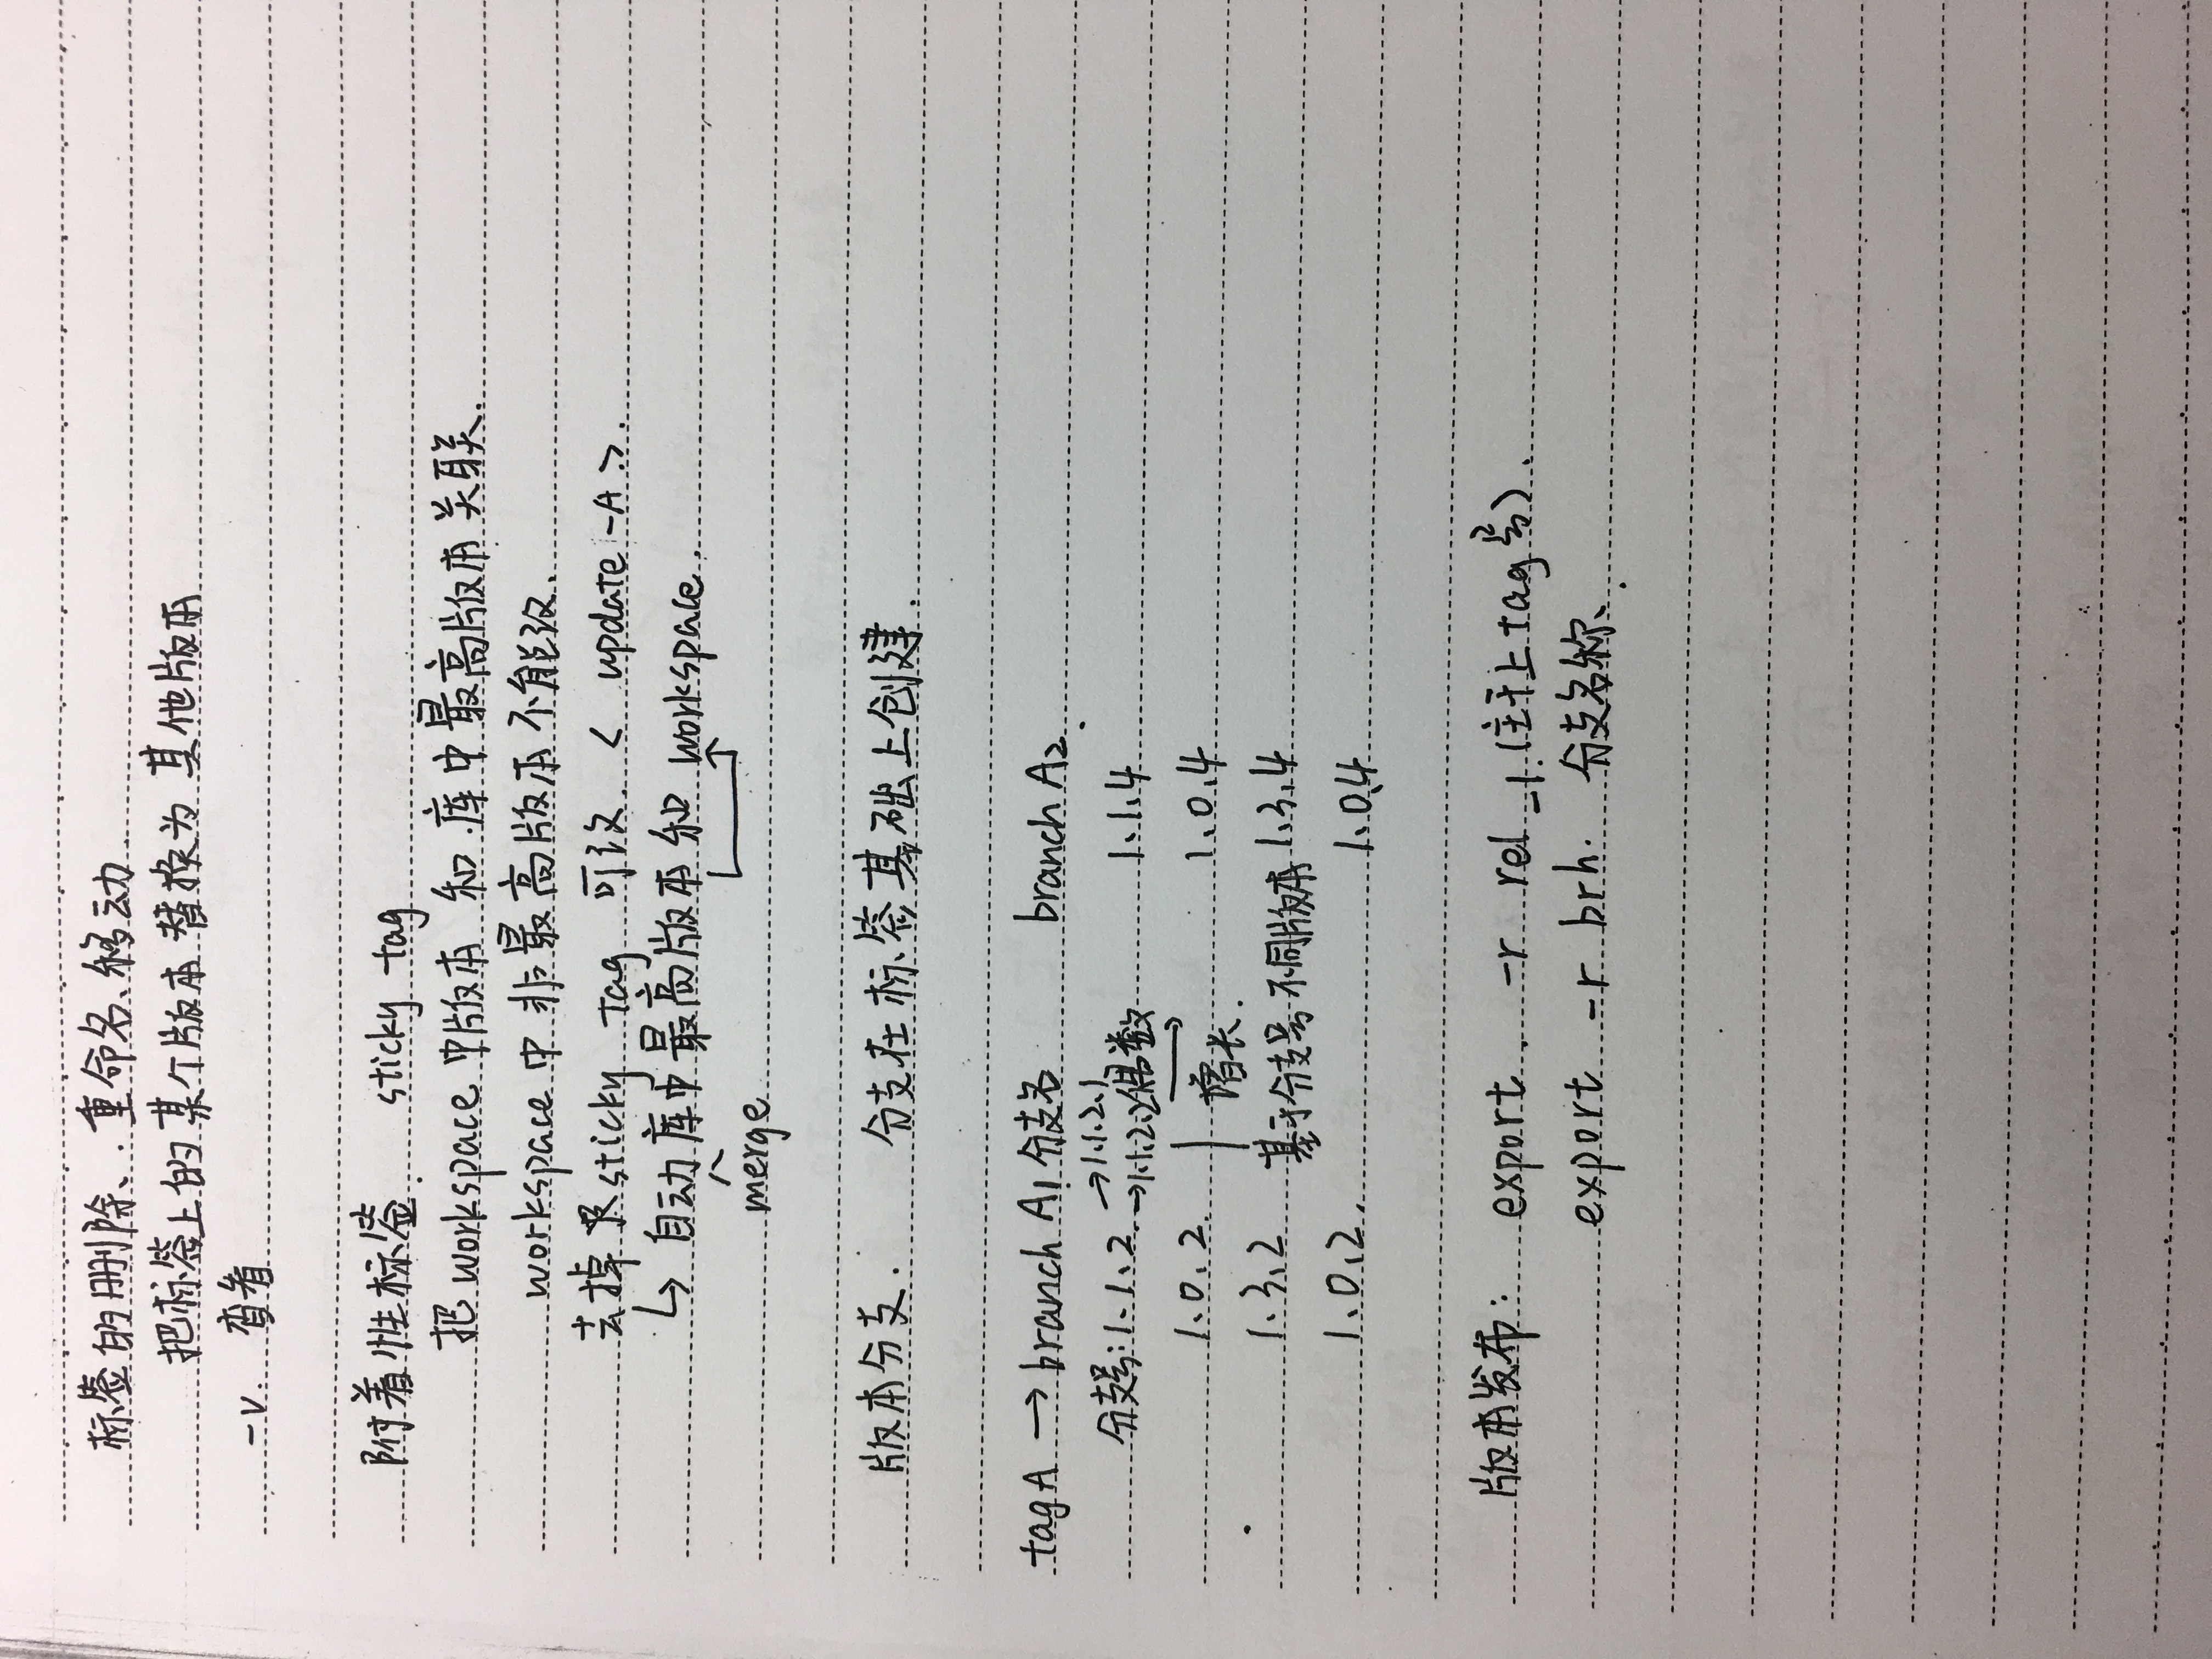 标签的删除、重命名、移动
把标签上的某个版本替换为其他版本
-v. 查看
附着性标签. sticky tag
把workspace中版本 和 库中最高版本关联.
workspace中非最高版本不能改.
去掉 sticky tag 可改. < update -A >.
↳ 自动库中最高版本和 workspace.
merge
版本分支. 分支在标签基础上创建.
tag A → branch A1 分支名 branch A2.
→1.1.2.1
分支号:1.1.2. →1.1.2.2 偶数 1.1.4
1.0.2. 增长. 1.0.4
1.3.2 基于分支号不同版本 1.3.4
1.0.2. 1.0.4
版本发布: export. -r rel_1. (主干上tag号).
export -r brh. 分支名称、